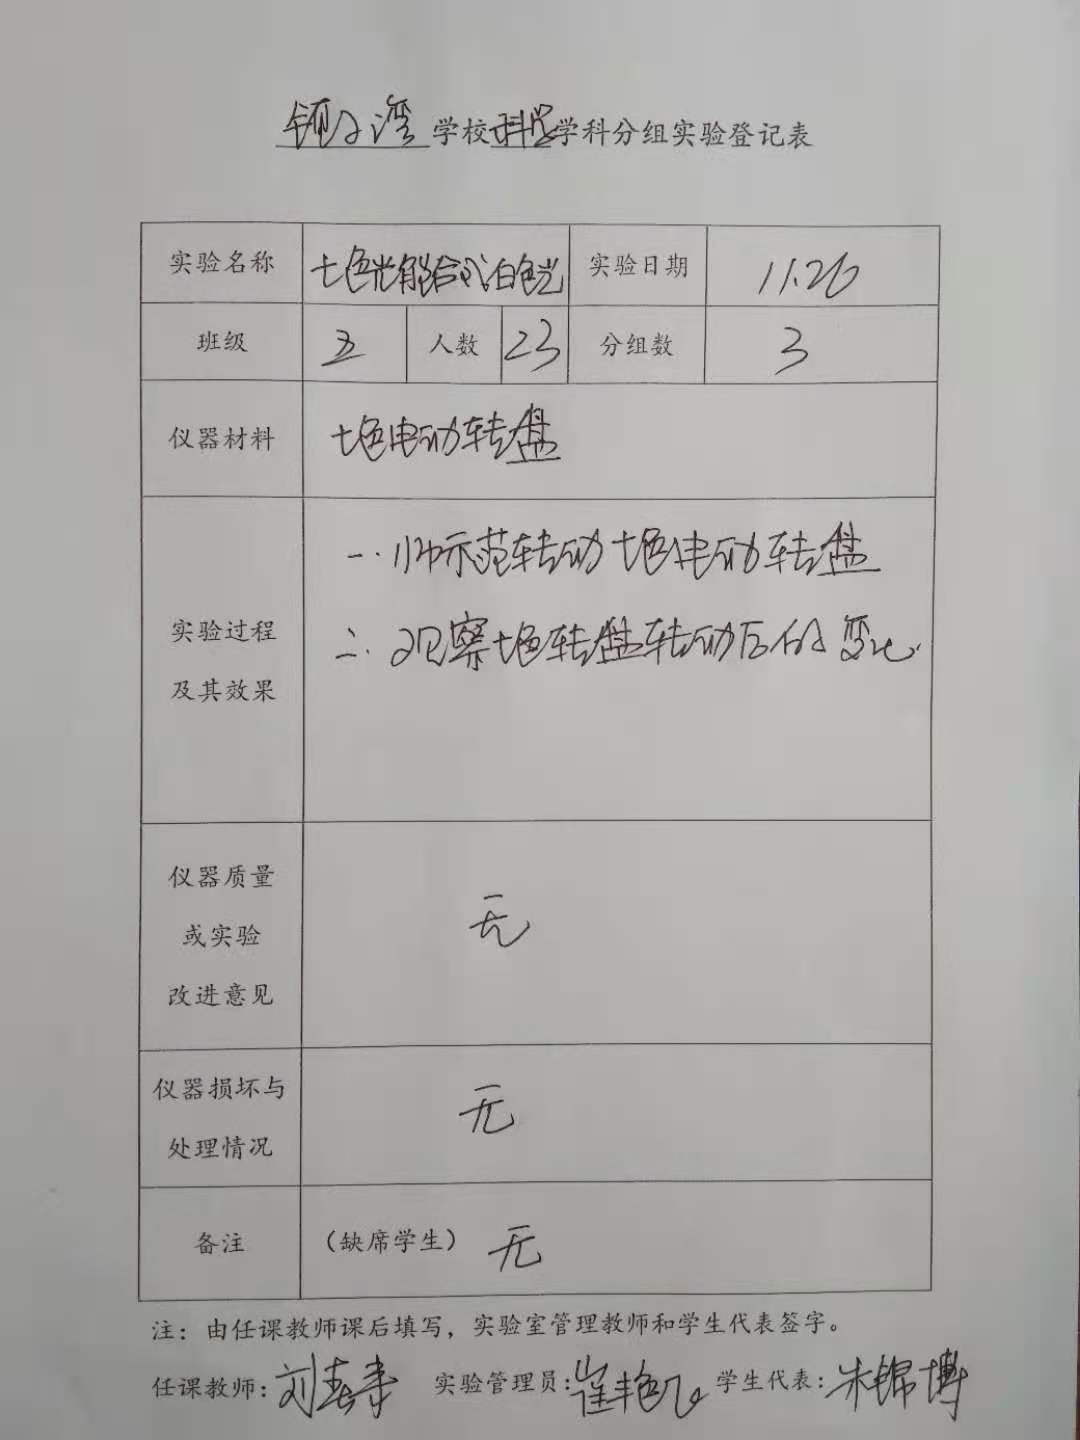 学校科学学科分组实验登记表
实验名称 七色光能合成白色光 实验日期 11.26
班级 五 人数 23 分组数 3
仪器材料 七色电动转盘
实验过程
及其效果
一. 师示范转动七色电动转盘
二. 观察七色转盘转动后的变化.
仪器质量
或实验
改进意见
无
仪器损坏与
处理情况
无
备注 (缺席学生) 无
注：由任课教师课后填写，实验室管理教师和学生代表签字。
任课教师: 刘春 实验管理员: 崔艳 学生代表: 朱锦博